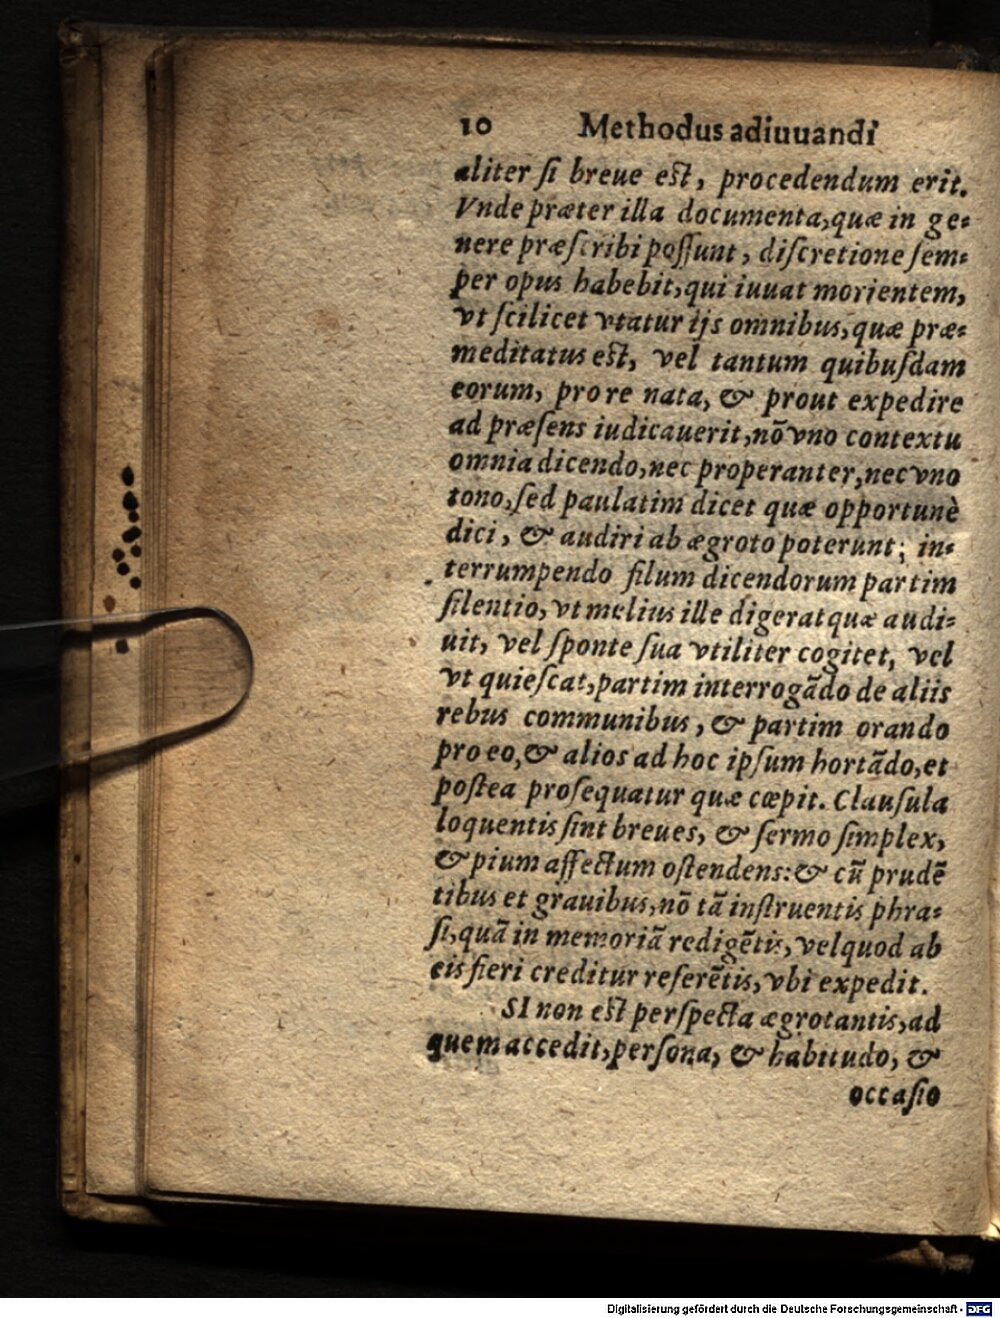 10 Methodus adiuuandi
aliter ſi breue eſt, procedendum erit.
Vnde præter illa documenta, quæ in ge-
nere præſcribi poſſunt, diſcretione ſem-
per opus habebit, qui iuuat morientem,
vt ſcilicet vtatur ijs omnibus, quæ præ-
meditatus eſt, vel tantum quibuſdam
eorum, pro re nata, & prout expedire
ad præſens iudicauerit, nõ vno contextu
omnia dicendo, nec properanter, nec vno
tono, ſed paulatim dicet quæ opportunè
dici, & audiri ab ægroto poterunt; in-
terrumpendo filum dicendorum partim
ſilentio, vt melius ille digerat quæ audi-
uit, vel ſponte ſua vtiliter cogitet, vel
vt quieſcat, partim interrogãdo de aliis
rebus communibus, & partim orando
pro eo, & alios ad hoc ipſum hortãdo, et
poſtea proſequatur quæ cœpit. Clauſula
loquentis ſint breues, & ſermo ſimplex,
& pium affectum oſtendens: & cũ prudẽ
tibus et grauibus, nõ tã inſtruentis phra-
ſi, quã in memoriã redigẽtis, vel quod ab
eis fieri creditur referẽtis, vbi expedit.
SI non eſt perſpecta ægrotantis, ad
quem accedit, perſona, & habitudo, &
occaſio
Digitalisierung gefördert durch die Deutsche Forschungsgemeinschaft - DFG